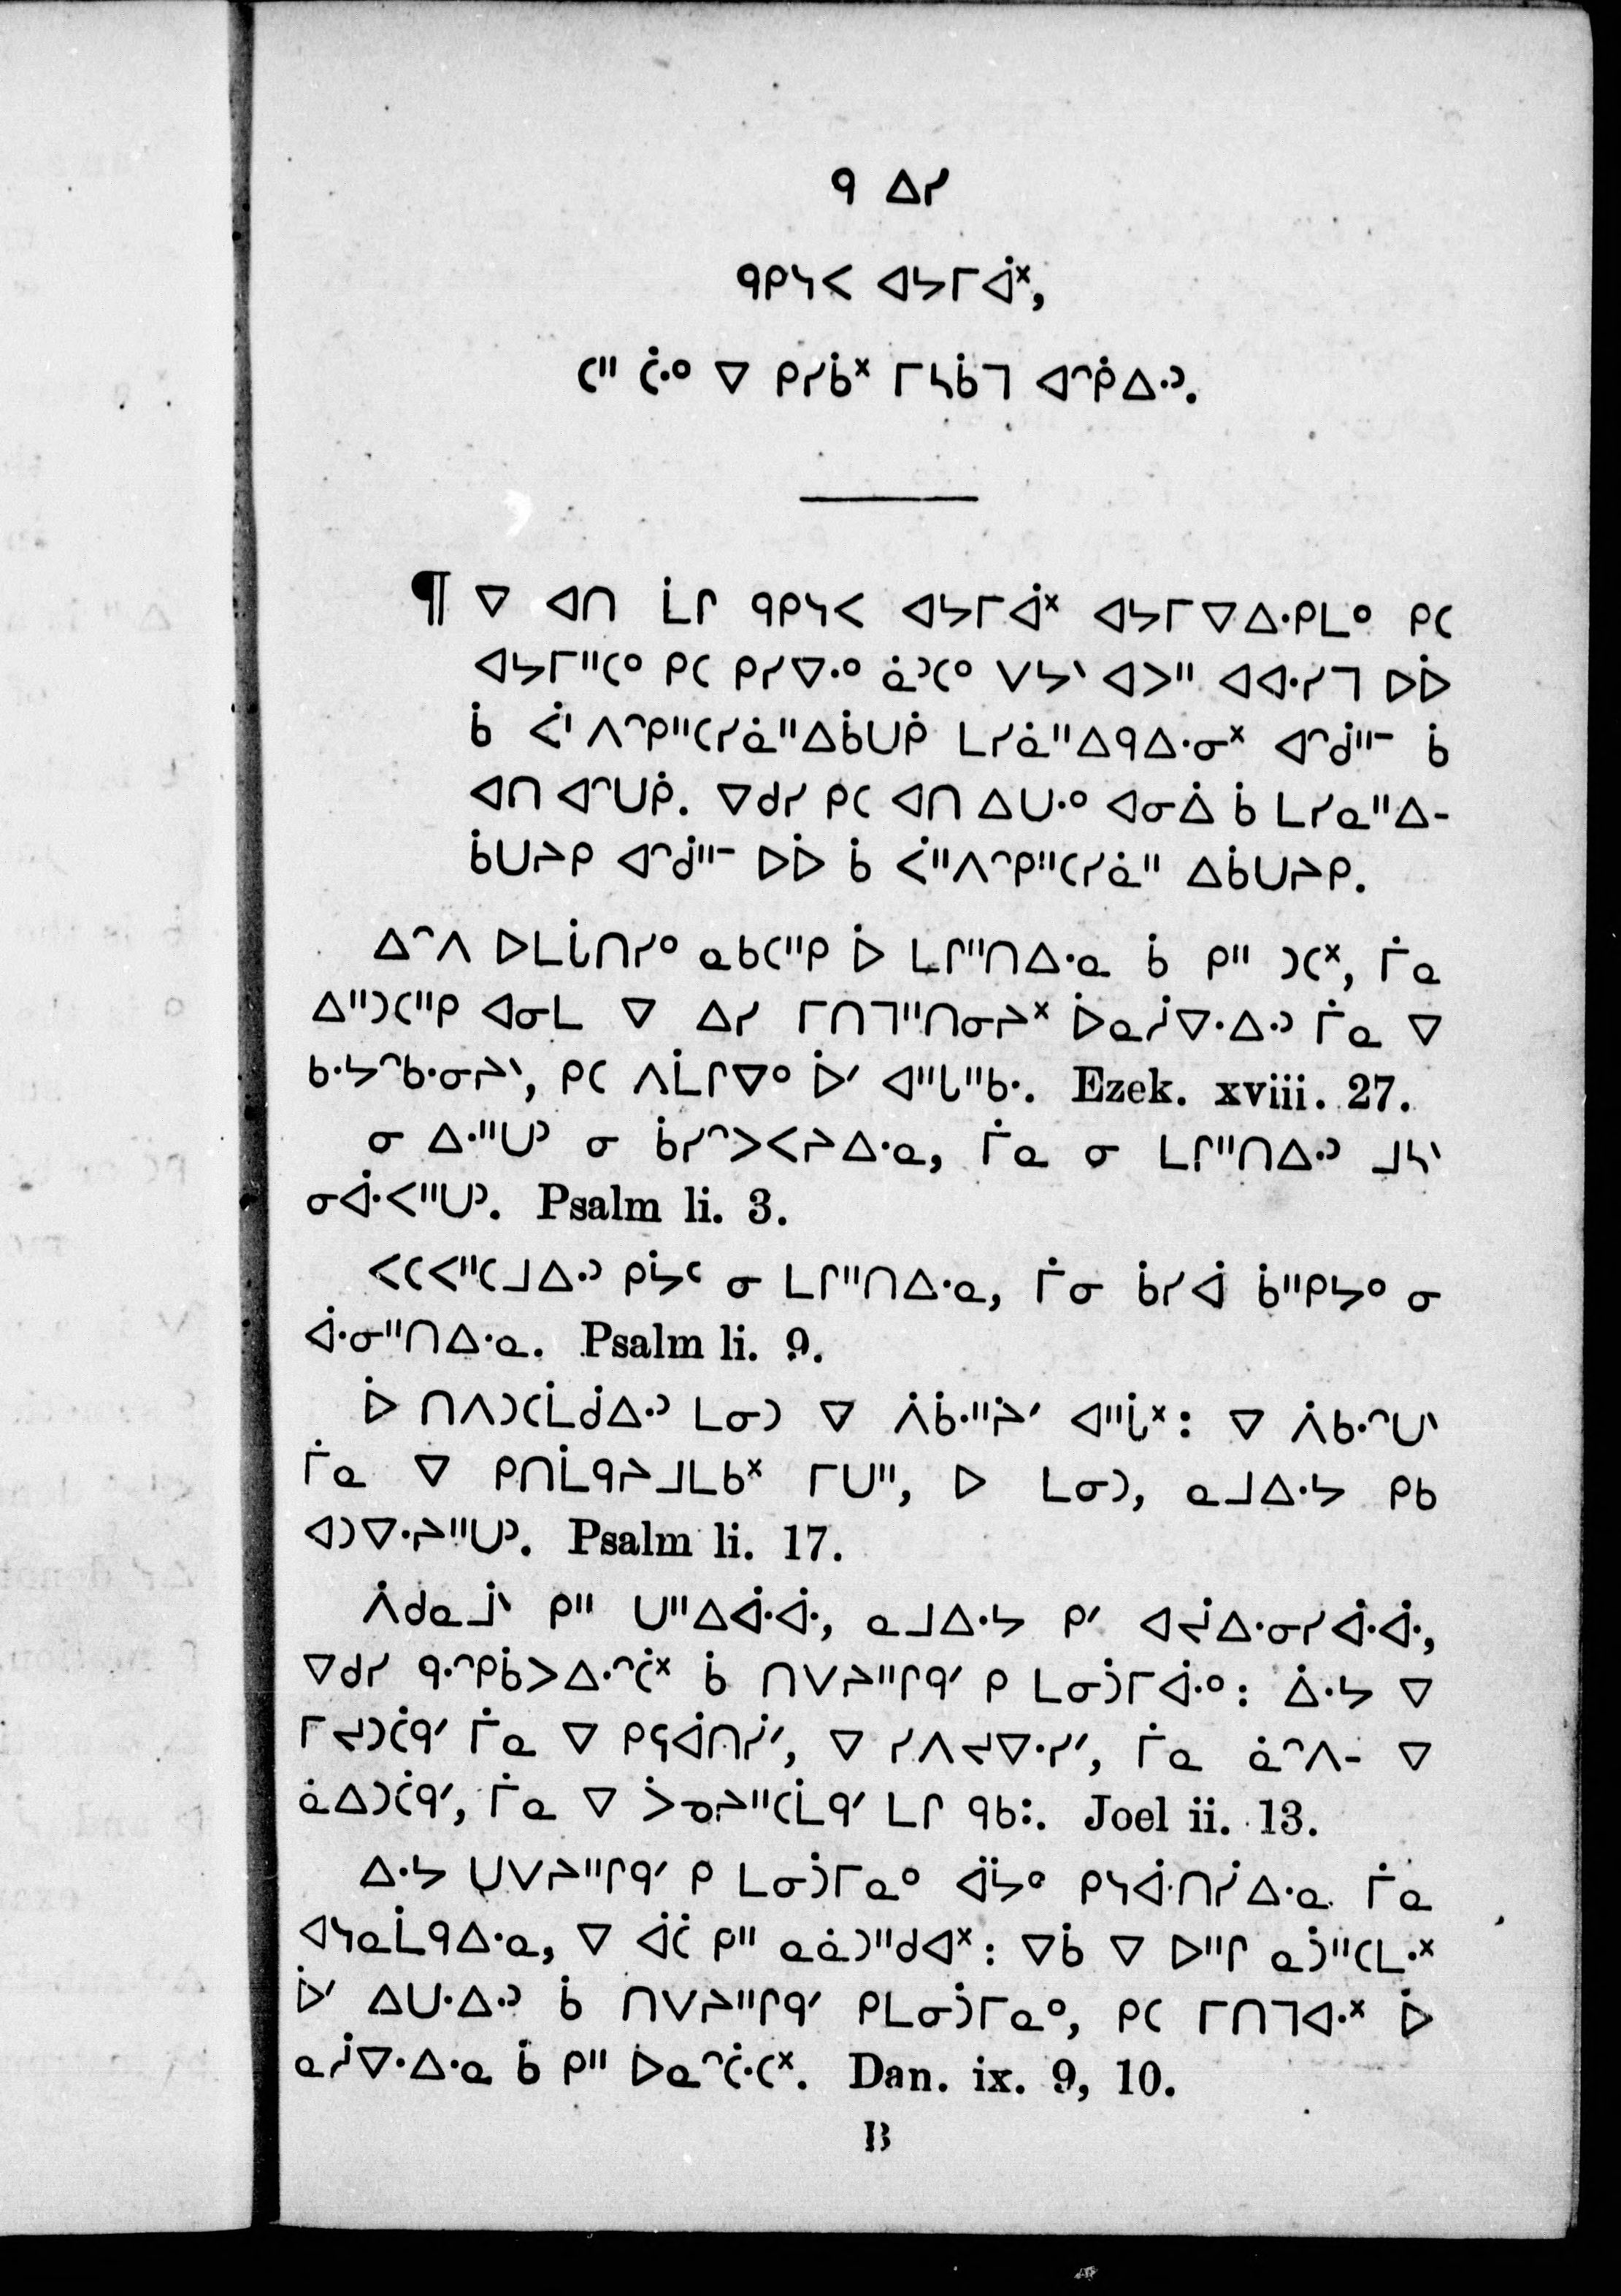 ᑫ ᐃᓯ
ᑫᑭᓴᐸ ᐊᔭᒥᐋᕽ,
ᑕᐦ ᑖᐧᐤ ᐁ ᑭᓯᑳᕽ ᒥᓴᑳᒣ ᐊᐢᑮᐃᐧᐣ.
¶ ᐁ ᐊᑎ ᒫᒋ ᑫᑭᓴᐸ ᐊᔭᒥᐋᕽ ᐊᔭᒥᐁᐃᐧᑭᒪᐤ ᑭᑕ
ᐊᔭᒥᐦᑕᐤ ᑭᑕ ᑭᓯᐁᐧᐤ ᓈᐣᑕᐤ ᐯᔭᐠ ᐊᐳᐦ ᐊᐊᐧᓯᒣ ᐅᐆ
ᑳ ᐹᑊ ᐱᐢᑭᐦᑕᓯᓈᐦᐃᑳᑌᑮ ᒪᓯᓈᐦᐃᑫᐃᐧᓂᕽ ᐊᐢᑰᐦᐨ ᑳ
ᐊᑎ ᐊᐢᑌᑮ. ᐁᑯᓯ ᑭᑕ ᐊᑎ ᐃᑌᐧᐤ ᐊᓂᐄ ᑳ ᒪᓯᓇᐦᐃ-
ᑳᑌᔨᑭ ᐊᐢᑰᐦᐨ ᐅᐆ ᑳ ᐹᐦᐱᐢᑭᐦᑕᓯᓈᐦ ᐃᑳᑌᔨᑭ.
ᐃᐢᐱ ᐅᒪᒑᑎᓯᐤ ᓇᑲᑕᐦᑭ ᐆ ᒪᒋᐦᑎᐃᐧᓇ ᑳ ᑭᐦ ᑐᑕᕽ, ᒦᓇ
ᐃᐦᑐᑕᐦᑭ ᐊᓂᒪ ᐁ ᐃᓯ ᒥᑎᒣᐦᑎᓂᔨᕽ ᐆᓇᓰᐁᐧᐃᐧᐣ ᒦᓇ ᐁ
ᑲᐧᔭᐢᑲᐧᓂᔨᐠ, ᑭᑕ ᐱᒫᒋᐁᐤ ᐆᐟ ᐊᐦᒐᐦᑲᐧ. Ezek. xviii. 27.
ᓂ ᐃᐧᐦᑌᐣ ᓂ ᑳᓯᐢᐳᐸᔨᐃᐧᓇ, ᒦᓇ ᓂ ᒪᒋᐦᑎᐃᐧᐣ ᒧᓴᐠ
ᓂᐋᐧᐸᐦᑌᐣ. Psalm li. 3.
ᐸᑕᐸᐦᑕᒧᐃᐧᐣ ᑭᔮᑦ ᓂ ᒪᒋᐦᑎᐃᐧᓇ, ᒦᓂ ᑳᓯᐋ ᑳᐦᑭᔭᐤ ᓂ
ᐋᐧᓂᐦᑎᐃᐧᓇ. Psalm li. 9.
ᐆ ᑎᐱᑐᑕᒫᑰᐃᐧᐣ ᒪᓂᑐ ᐁ ᐲᑳᐧᐦᔩᐟ ᐊᐦᒑᕽ: ᐁ ᐲᑲᐧᐢᑌᐠ
ᒦᓇ ᐁ ᑭᑎᒫᑫᔨᒧᒪᑲᕽ ᒥᑌᐦ, ᐅ ᒪᓂᑐ, ᓇᒧᐃᐧᔭ ᑭᑲ
ᐊᑐᐁᐧᔨᐦᑌᐣ. Psalm li. 17.
ᐲᑯᓇᒨᐠ ᑭᐦ ᑌᐦᐃᐋᐧᐋᐧ, ᓇᒧᐃᐧᔭ ᑭᐟ ᐊᔪᐄᐧᓂᓯᐋᐧᐋᐧ,
ᐁᑯᓯ ᑫᐧᐢᑭᑳᐳᐃᐧᐢᑖᕽ ᑳ ᑎᐯᔨᐦᒋᑫᐟ ᑭ ᒪᓂᑑᒥᐋᐧᐤ: ᐄᐧᔭ ᐁ
ᒥᔪᑑᑖᑫᐟ ᒦᓇ ᐁ ᑭᓭᐋᑎᓰᐟ, ᐁ ᓯᐱᔪᐁᐧᓯᐟ, ᒦᓇ ᓈᐢᐱ- ᐁ
ᓈᐃᑐᑖᑫᐟ, ᒦᓇ ᐁ ᐴᓀᔨᐦᑕᒫᑫᐟ ᒪᒋ ᑫᑲᐧ. Joel ii. 13.
ᐃᐧᔭ ᑌᐯᔨᐦᒋᑫᐟ ᑭ ᒪᓂᑑᒥᓇᐤ ᐋᔮᐤ ᑭᓴᐋᐧᑎᓰᐃᐧᓇ ᒦᓇ
ᐊᓴᓇᒫᑫᐃᐧᓇ, ᐁ ᐋᑖ ᑭᐦ ᓇᓈᑐᐦᑯᐊᕽ: ᐁᑳ ᐁ ᐅᐦᒋ ᓇᑑᐦᑕᒪᐧᕽ
ᐆᐟ ᐃᑌᐧᐃᐧᐣ ᑳ ᑎᐯᔨᐦᒋᑫᐟ ᑭᒪᓂᑑᒥᓇᐤ, ᑭᑕ ᒥᑎᒣᐊᐧᕽ ᐆ
ᓇᓰᐁᐧᐃᐧᓇ ᑳ ᑭᐦ ᐅᓇᐢᑖᐧᑕᕽ. Dan. ix. 9, 10.
B